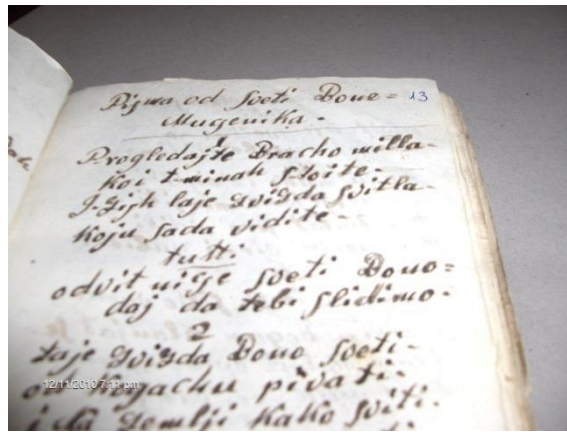 Pisma od Sveti Bone= 13
Mugenika.
1
Progledajte Bracho milla-
koi t-minah stoite-
laje zvizda svitla-
koju sada vidite-
tutti.
odvit nije Sveti Bono=
daj da tebi slidimo-
2
taje zvizda Bono Sveti-
od kojachu pivati-
i da zemlji kako sviti-
12/11/2010 7:11 pm